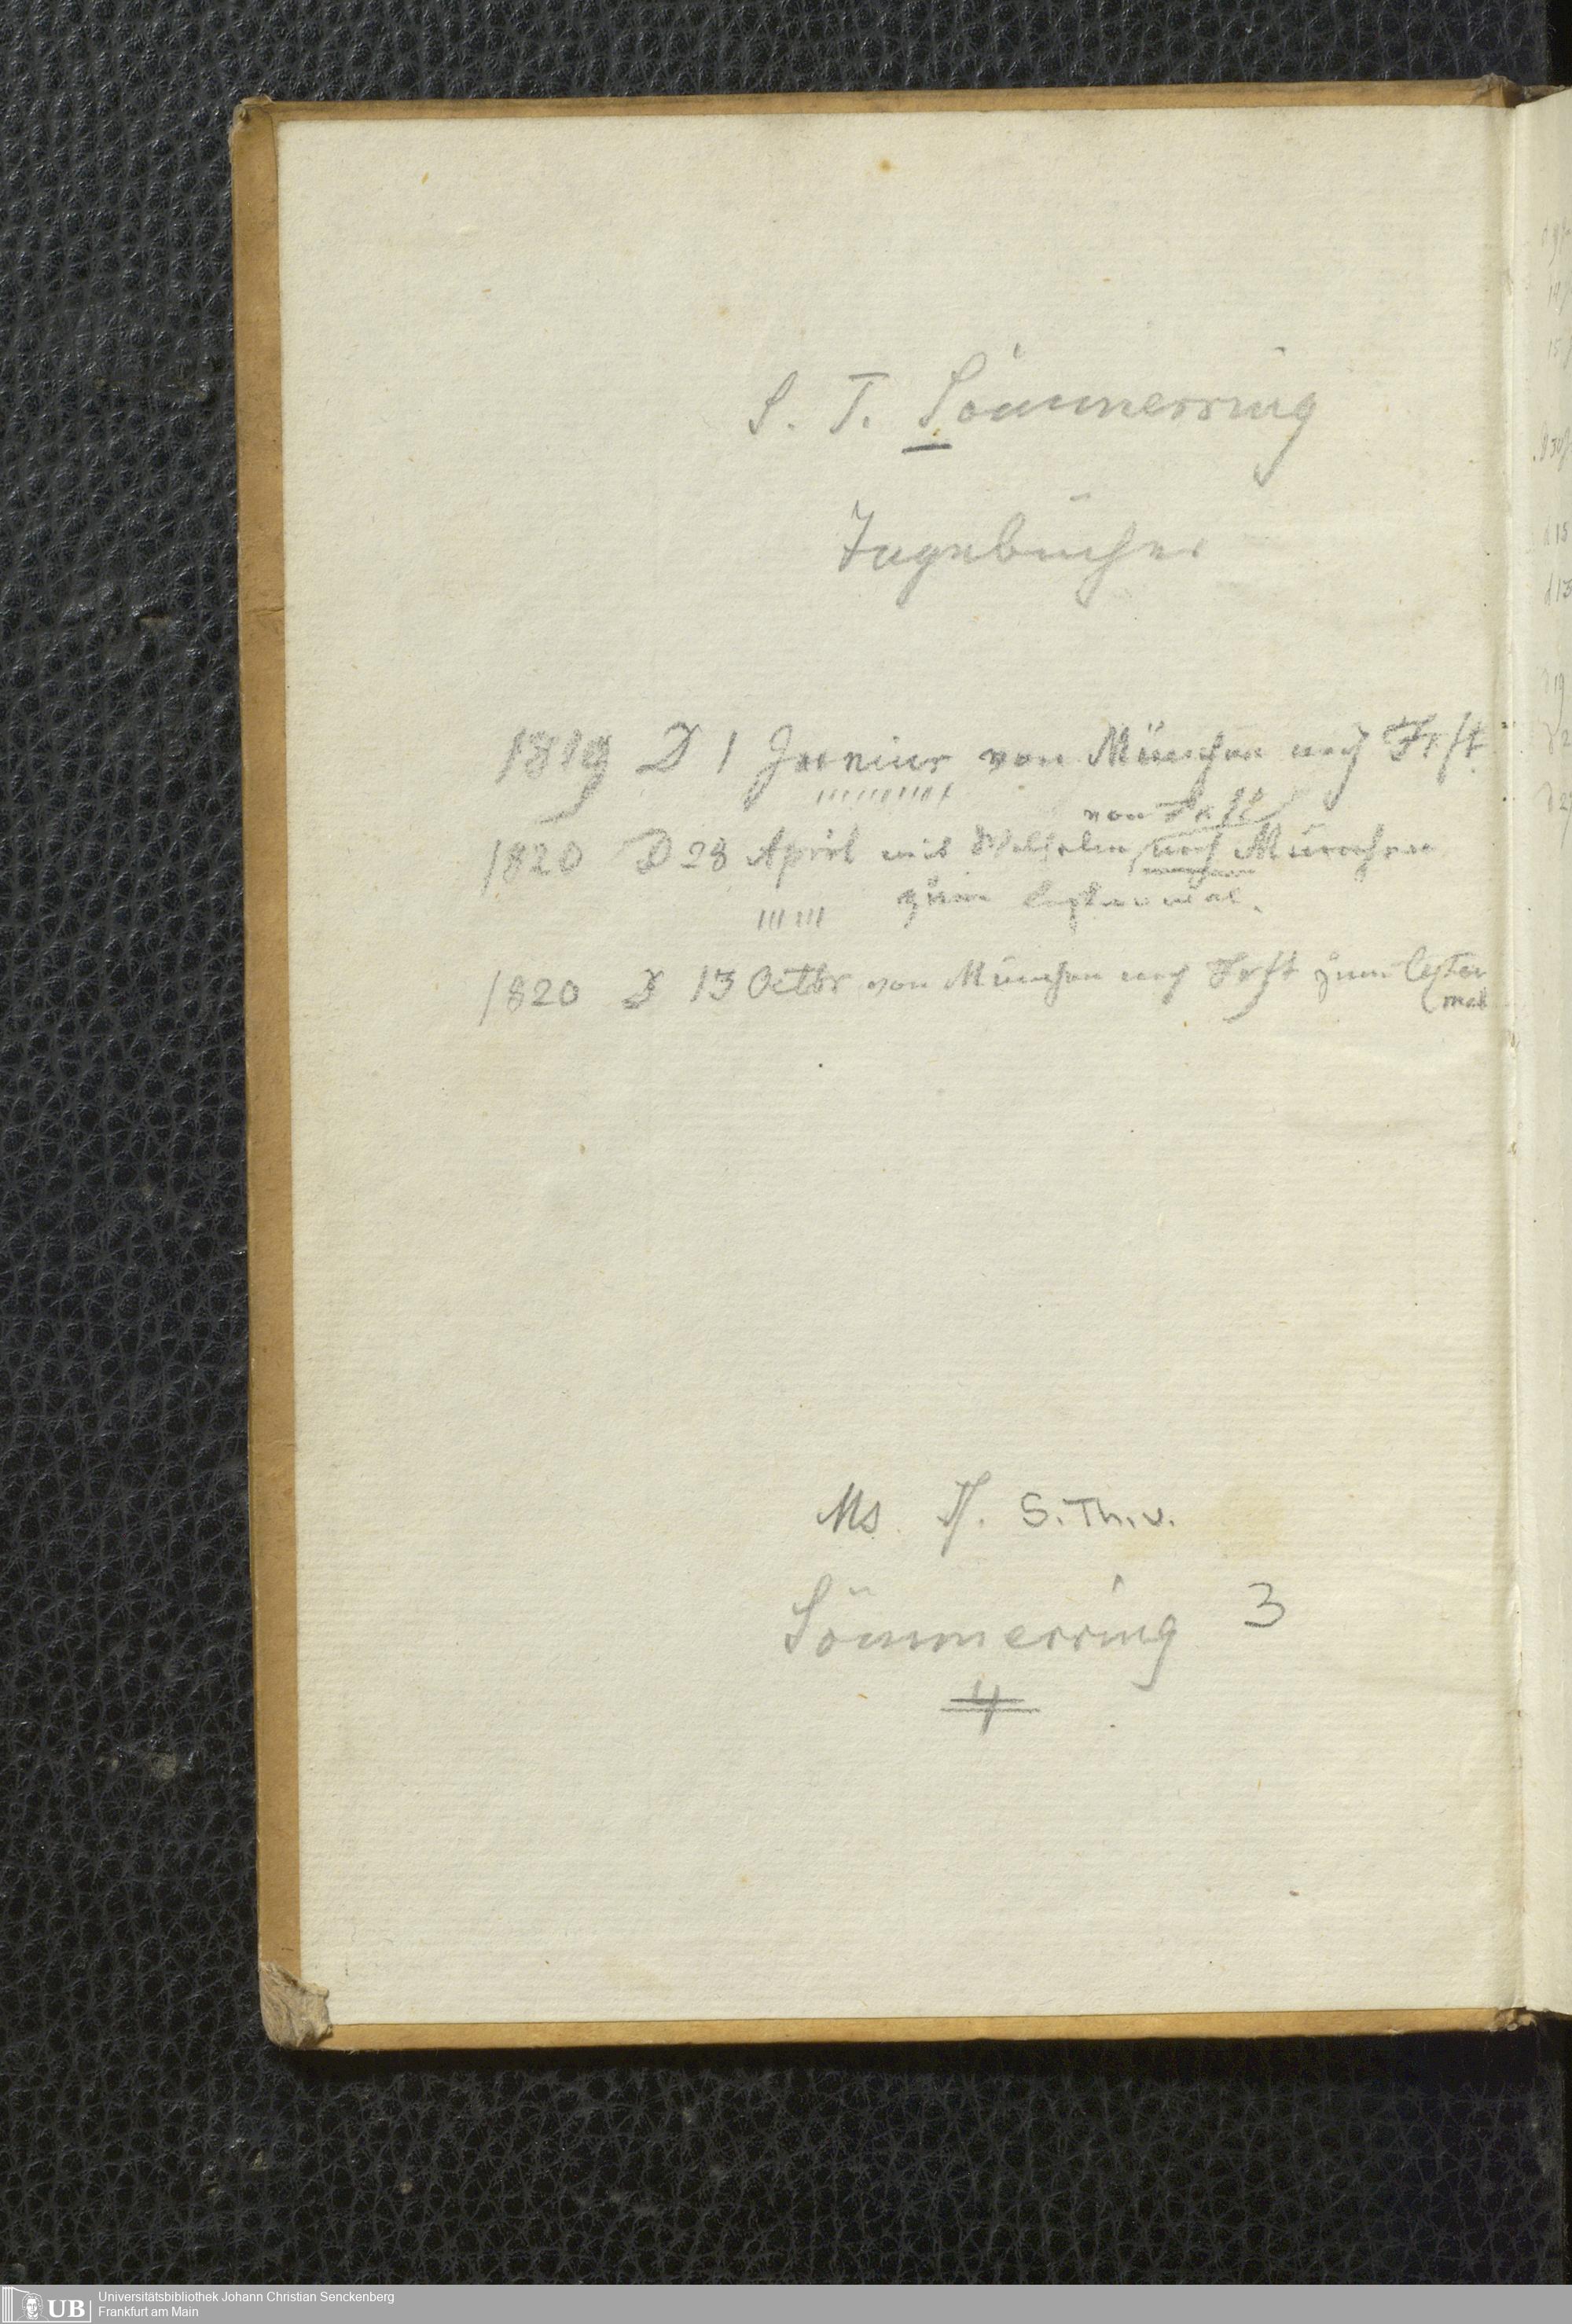 S. T. Sömmerring
Tagebücher
1819 D 1 Junius von München nach Frft
von Frft
1820 D 28 April mit Wilhelm nach München
zum letztenmal.
1820 D 13 Octbr von München nach Frft zum letzten
mal
Ms. S. Th. v.
Sömmerring 3
4
UB Universitätsbibliothek Johann Christian Senckenberg
Frankfurt am Main